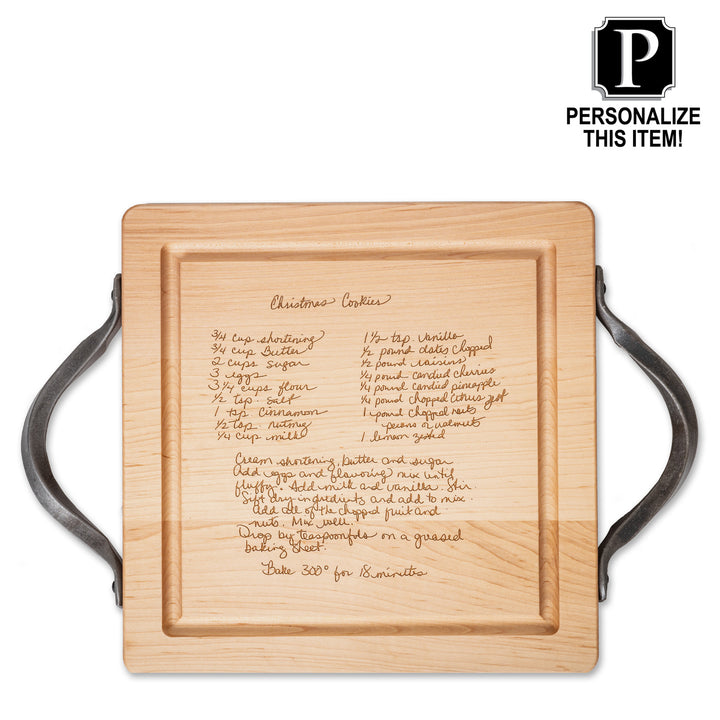 P
PERSONALIZE
THIS ITEM!
Christmas Cookies
3/4 cup shortening
3/4 cup Butter
2 cups sugar
3 eggs
3 1/4 cups flour
1/2 tsp. salt
1 tsp. cinnamon
1/2 tsp. nutmeg
1/4 cup milk
1 1/2 tsp. vanilla
1/2 pound dates chopped
1/2 pound raisins
1/4 pound candied cherries
1/4 pound candied pineapple
1/4 pound chopped citrus
1 pound chopped nuts
pecans or walnuts
1 lemon zested
Cream shortening, butter and sugar
Add eggs and flavoring mix until
fluffy. Add milk and vanilla. Stir.
Sift dry ingredients and add to mix.
Add all of the chopped fruit and
nuts. Mix well.
Drop by teaspoonfuls on a greased
baking sheet.
Bake 300° for 18 minutes